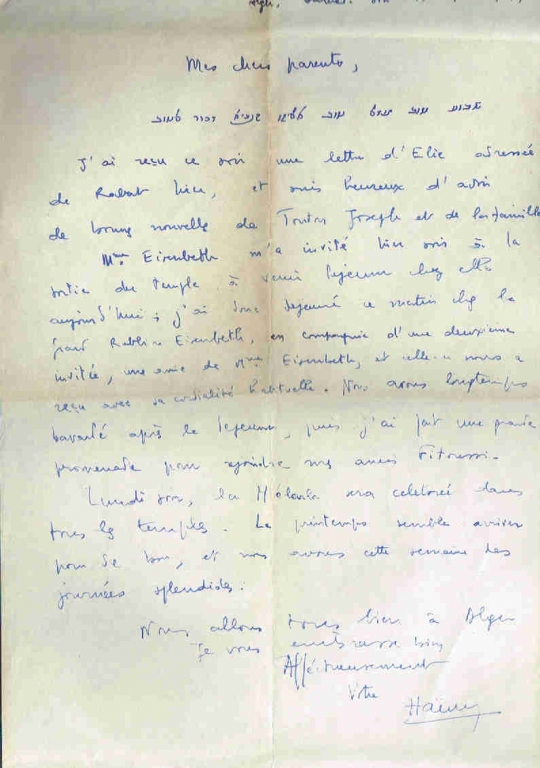 Alger,
Mes chers parents,
שבוע טוב
J'ai reçu ce soir une lettre d'Elie adressée
de Rabat hier, et suis heureux d'avoir
de bonnes nouvelles de Tonton Joseph et de sa famille
Mme Eisenbeth m'a invité hier soir à la
sortie du temple à venir déjeuner chez elle
aujourd'hui; j'ai donc déjeuné ce matin chez le
grand Rabbin Eisenbeth, en compagnie d'une deuxième
invitée, une amie de Mme Eisenbeth, et celle-ci nous a
reçu avec sa cordialité habituelle. Nous avons longtemps
bavardé après le déjeuner, puis j'ai fait une grande
promenade pour rejoindre mes amis Fitoussi.
Lundi soir, la Hiloula sera célébrée dans
tous les temples. Le printemps semble arriver
pour de bon, et nous avons cette semaine des
journées splendides.
Nous allons tous bien à Alger
Je vous embrasse bien
Affectueusement
Votre
Haïm